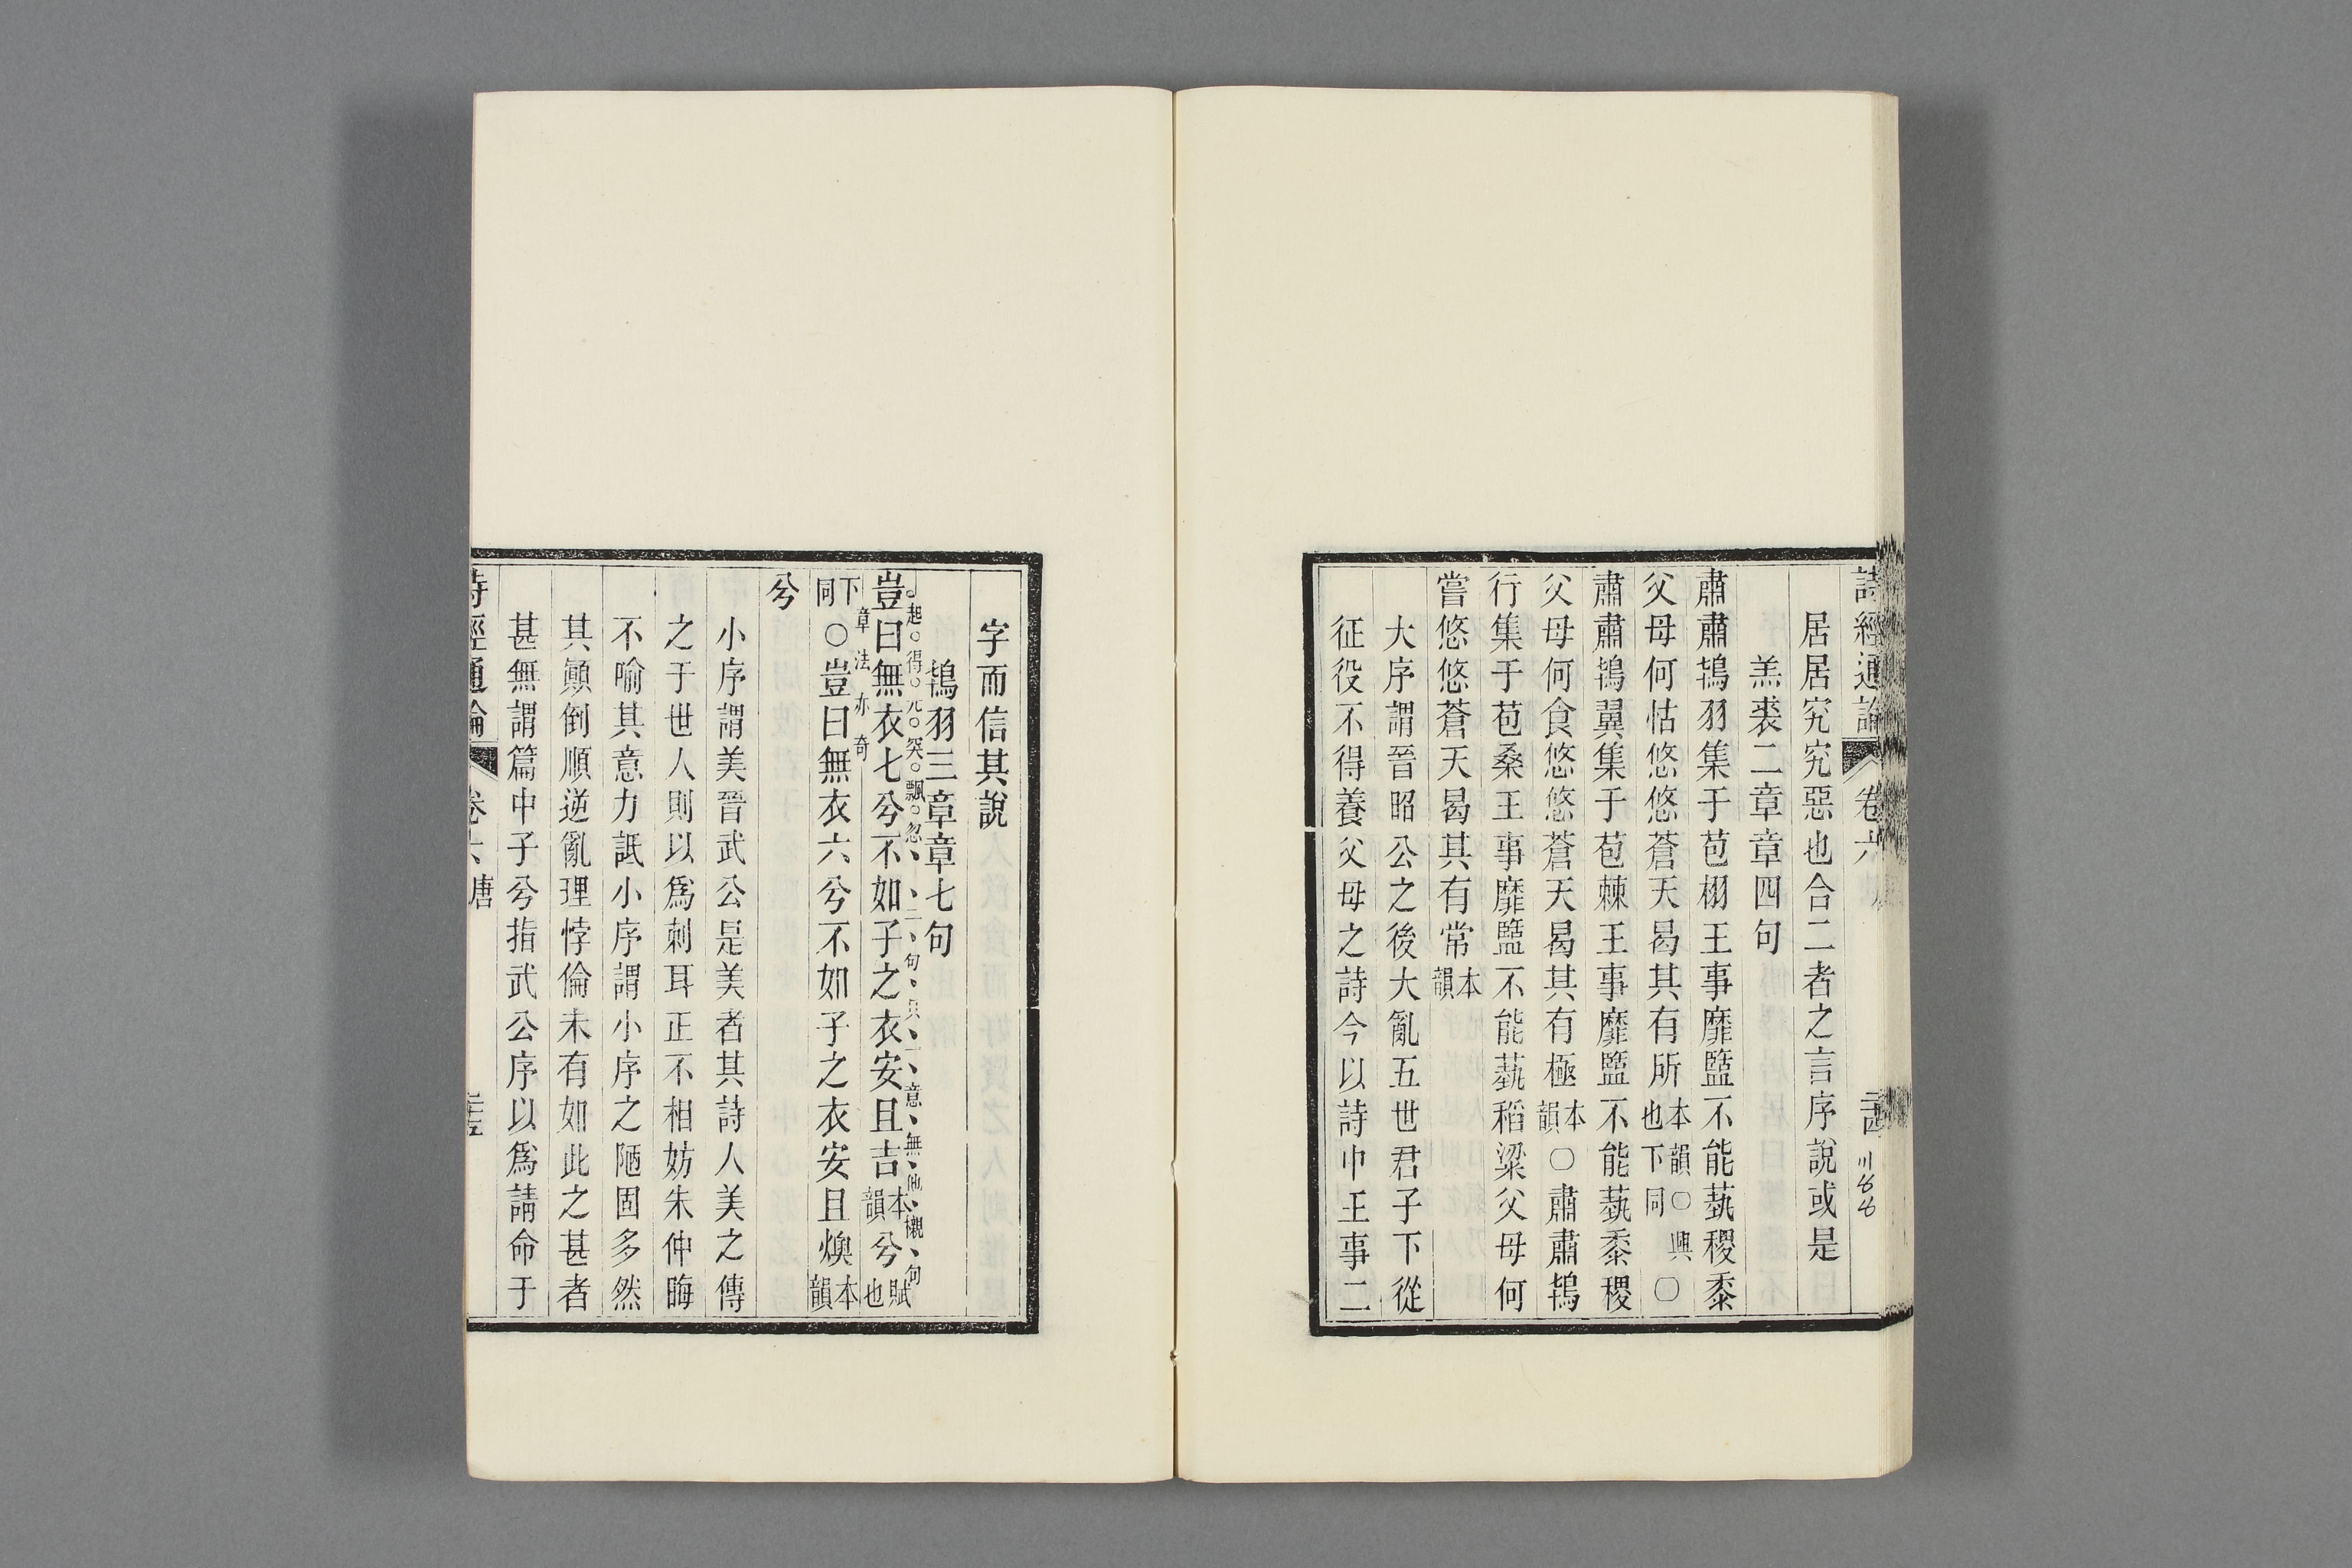 詩經通論 卷六
居居究究惡也合二者之言序說或是
羔裘二章章四句
肅肅鴇羽集于苞栩王事靡盬不能蓺稷黍
父母何怙悠悠蒼天曷其有所本韻也○興下同○
肅肅鴇翼集于苞棘王事靡盬不能蓺黍稷
父母何食悠悠蒼天曷其有極本韻○肅肅鴇
行集于苞桑王事靡盬不能蓺稻粱父母何
嘗悠悠蒼天曷其有常本韻
大序謂晉昭公之後大亂五世君子下從
征役不得養父母之詩今以詩中王事二
字而信其說
鴇羽三章章七句
起得兀突飄忽二句只一意無他襯句
豈曰無衣七兮不如子之衣安且吉本韻兮賦也
章法亦奇
下同○豈曰無衣六兮不如子之衣安且燠本韻
兮
小序謂美晉武公是美者其詩人美之傳
之于世人則以爲刺耳正不相妨朱仲晦
不喻其意力詆小序謂小序之陋固多然
其顚倒順逆亂理悖倫未有如此之甚者
甚無謂篇中子兮指武公序以爲請命于
詩經通論 卷六 唐 二十五